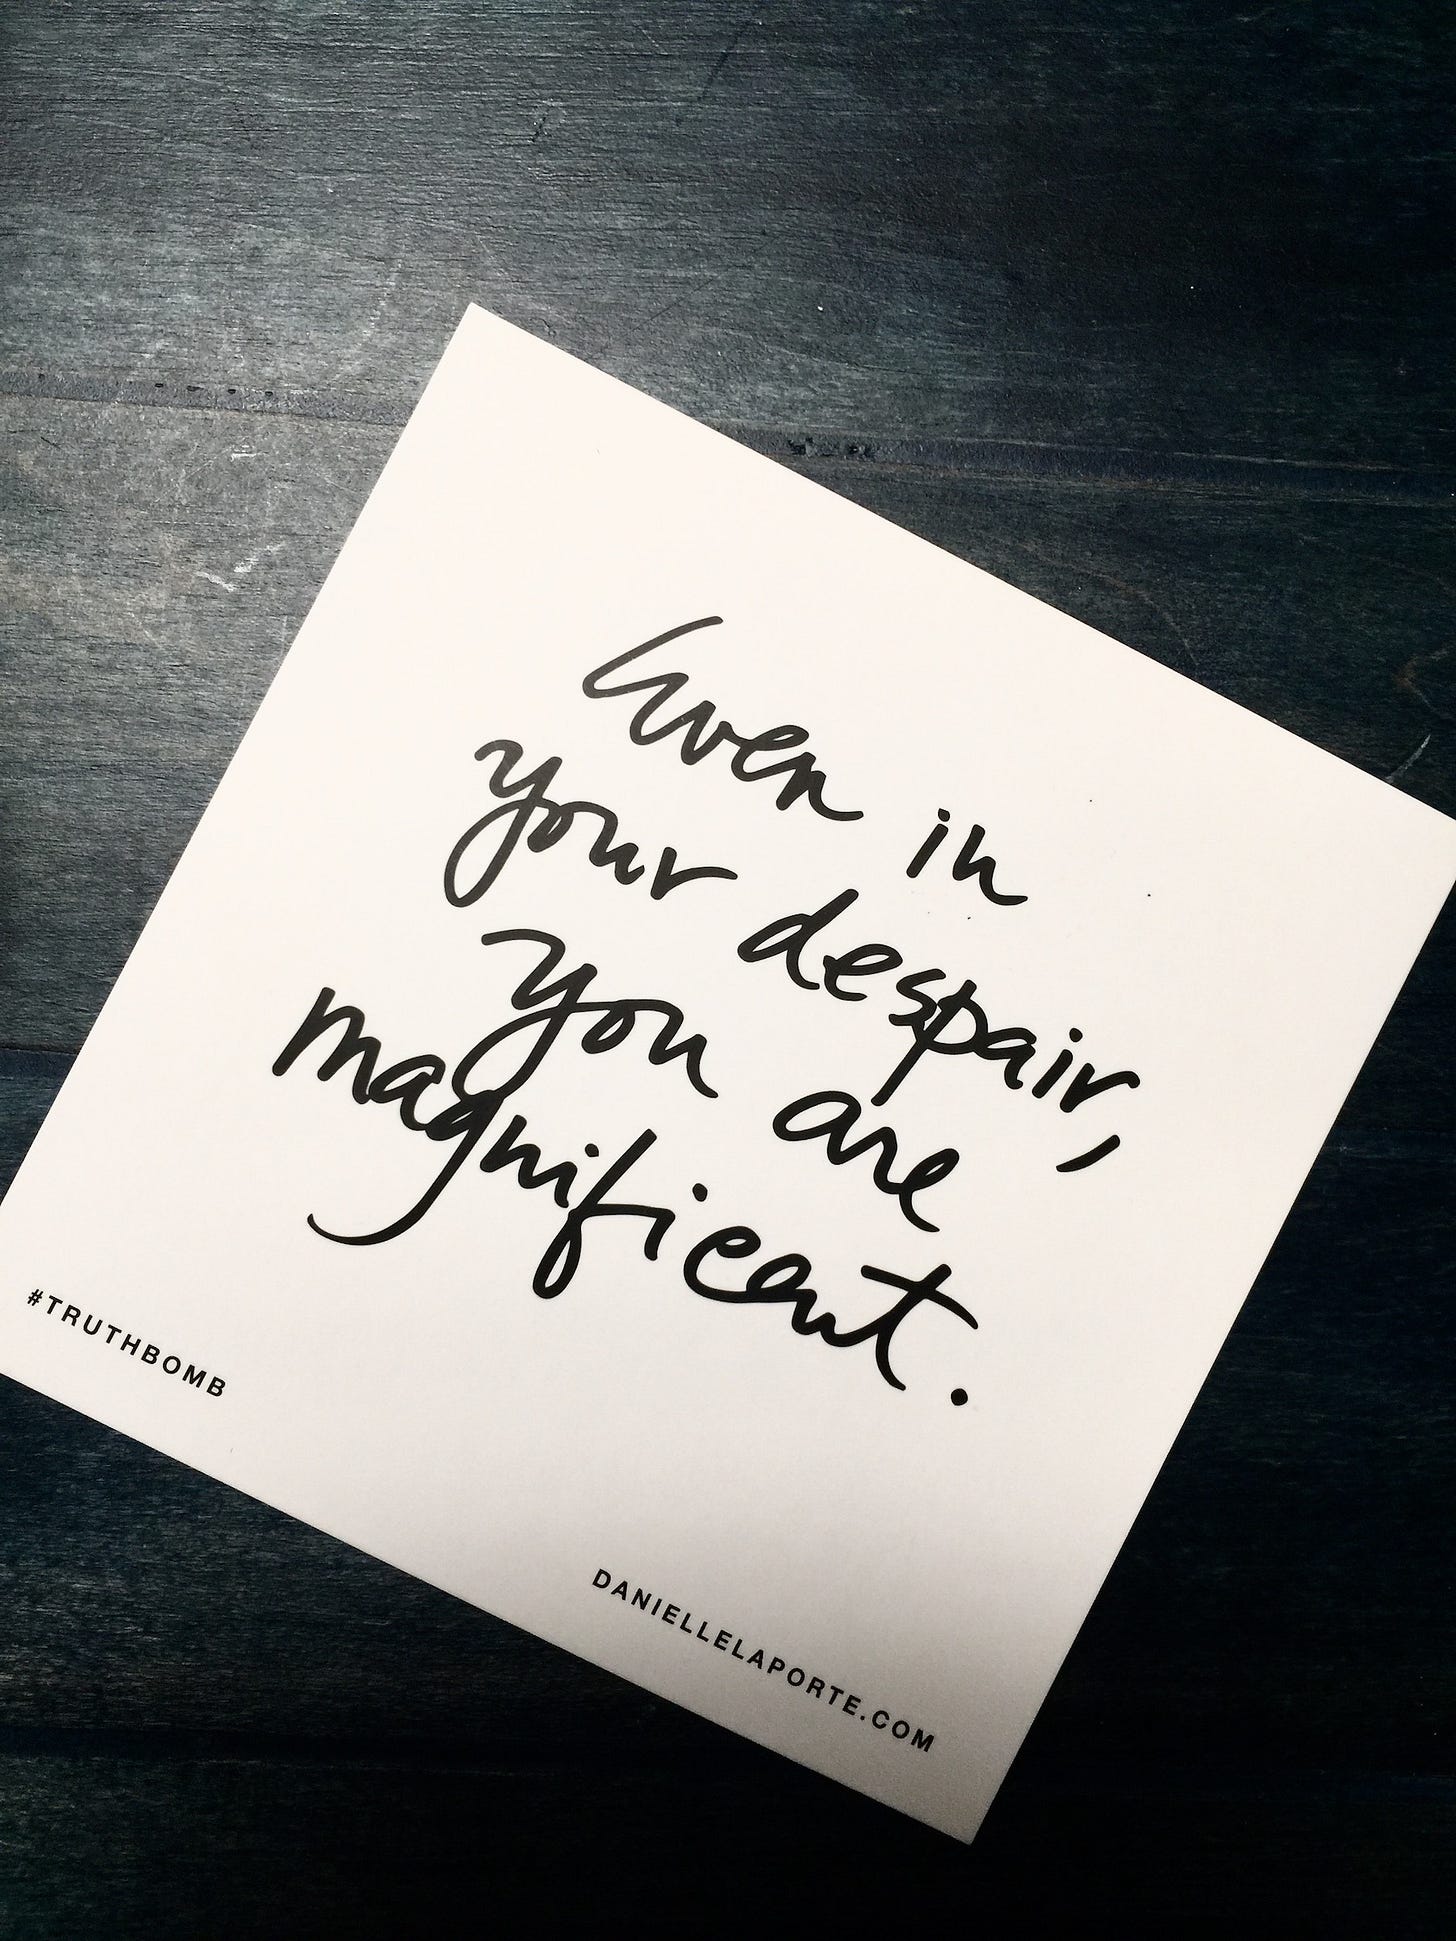 Even in
your despair,
you are
magnificent.
#TRUTHBOMB
DANIELLELAPORTE.COM